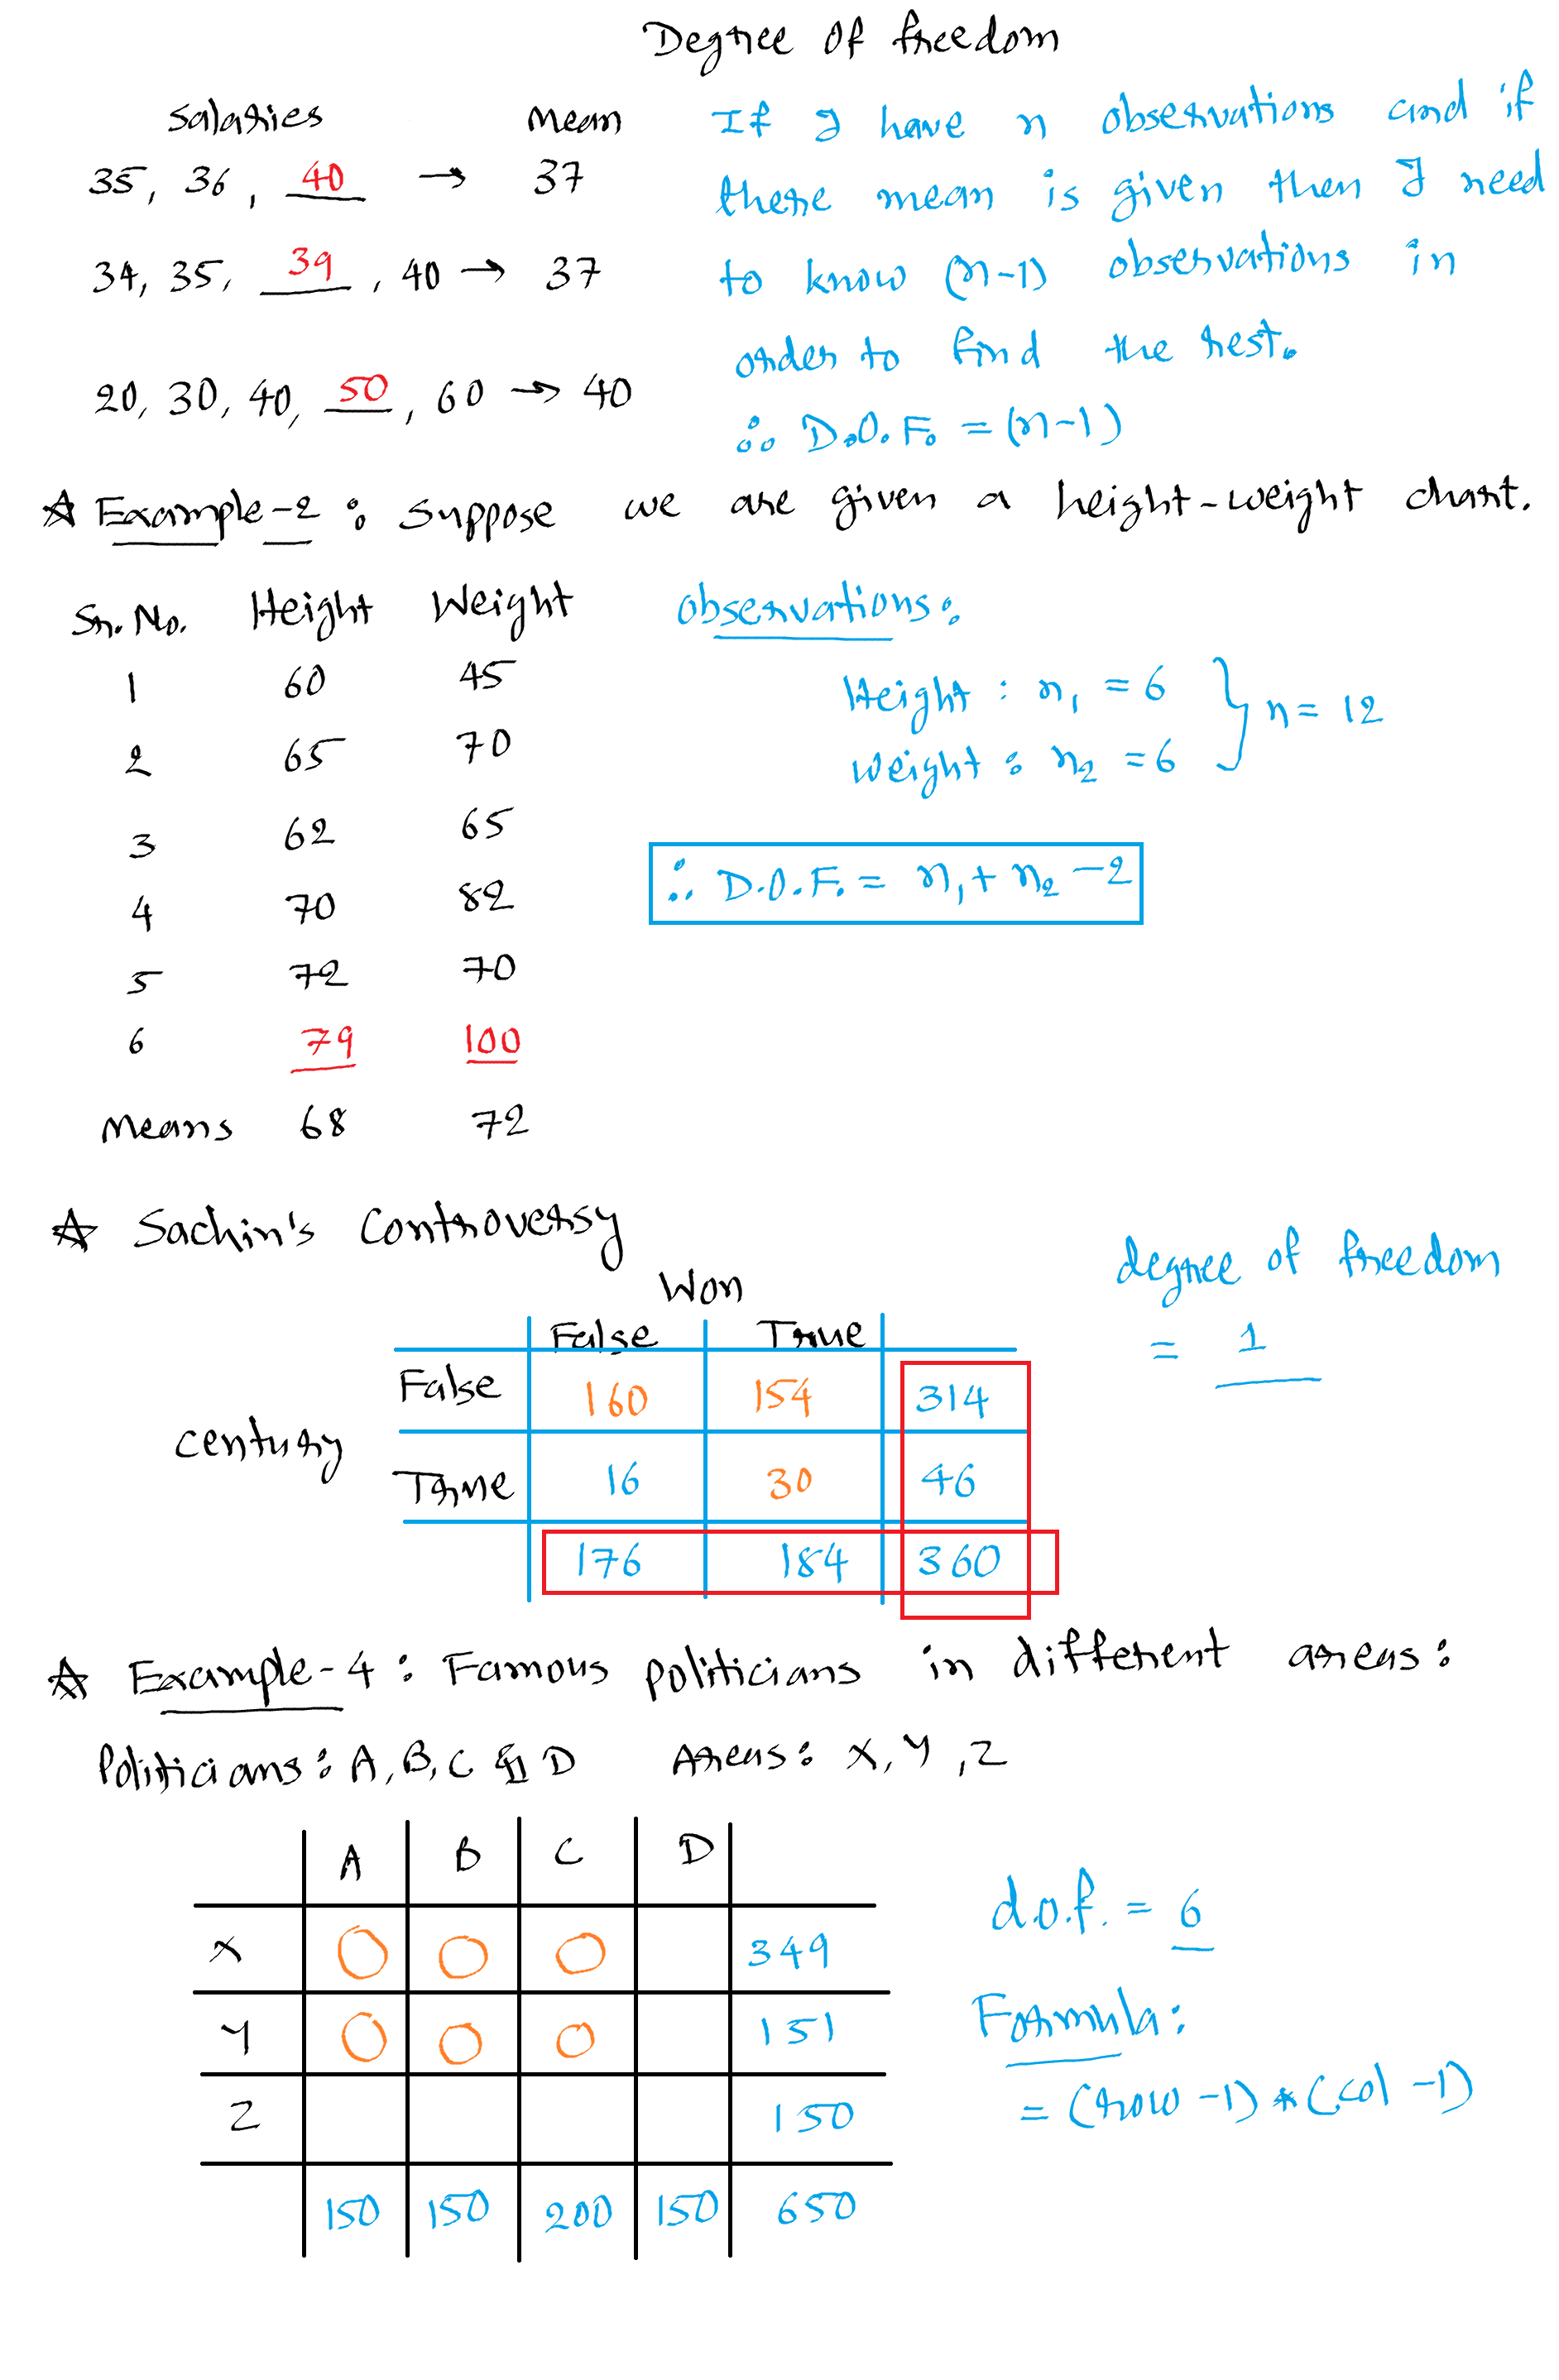 Degree of freedom
Salaries Mean
35, 36, 40 → 37
34, 35, 39, 40 → 37
20, 30, 40, 50, 60 → 40
If I have n observations and if
there mean is given then I need
to know (n-1) observations in
order to find the rest.
∴ D.O.F. = (n-1)
☆ Example-2 : Suppose we are given a height-weight chart.
Sr. No. Height Weight
1 60 45
2 65 70
3 62 65
4 70 82
5 72 70
6 79 100
Means 68 72
observations:
Height : n₁ = 6
weight : n₂ = 6
} n = 12
∴ D.O.F. = n₁ + n₂ - 2
☆ Sachin's Controversy
Won
False True
False 160 154 314
century
True 16 30 46
176 184 360
degree of freedom
= 1
☆ Example-4 : Famous politicians in different areas:
Politicians : A, B, C & D Areas : X, Y, Z
A B C D
X O O O 349
Y O O O 151
Z 150
150 150 200 150 650
d.o.f. = 6
Formula:
= (row -1) * (col -1)